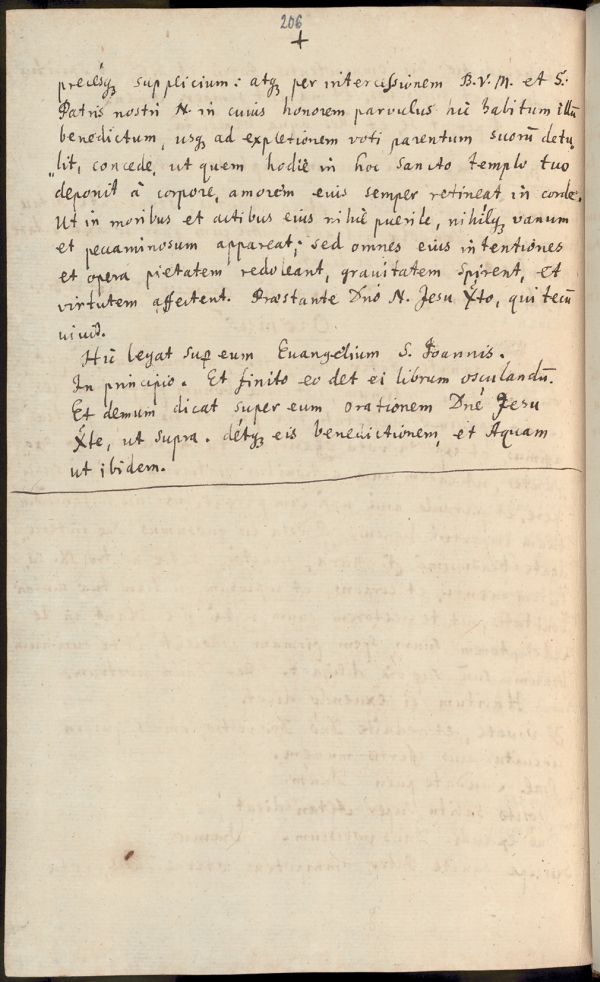 206
+
precésq; supplicium: atq; per intercessionem B.V.M. et S:
Patris nostri N. in cuius honorem parvulus hic habitum illũ
benedictum, usq; ad expletionem voti parentum suorũ detu„
„lit, concede, ut quem hodiè in hoc sancto templo tuo
deponit à corpore, amorem eius semper retineat in corde.
Ut in moribus et actibus eius nihil puerile, nihilq; vanum
et peccaminosum appareat; sed omnes eius intentiones
et opera pietatem redoleant, gravitatem spirent, et
virtutem affectent. Præstante Dnó N. Jesu Xto, qui tecũ
vivit.
Hic legat sup eum Evangelium S. Joannis.
In principio. Et finito eo det ei librum osculandũ.
Et demum dicat super eum orationem Dné Jesu
Xte, ut supra. détq; eis benedictionem, et Aquam
ut ibidem.